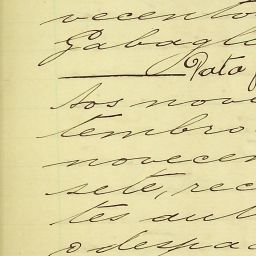 vecento
Gabagli
Data
tos nove
tembro
novecen
sete, rec
tes aut
o despac